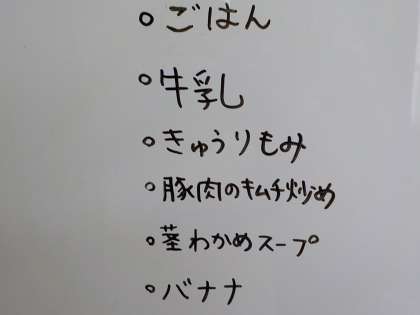 ○ ごはん
○ 牛乳
○ きゅうりもみ
○ 豚肉のキムチ炒め
○ 茎わかめスープ
○ バナナ